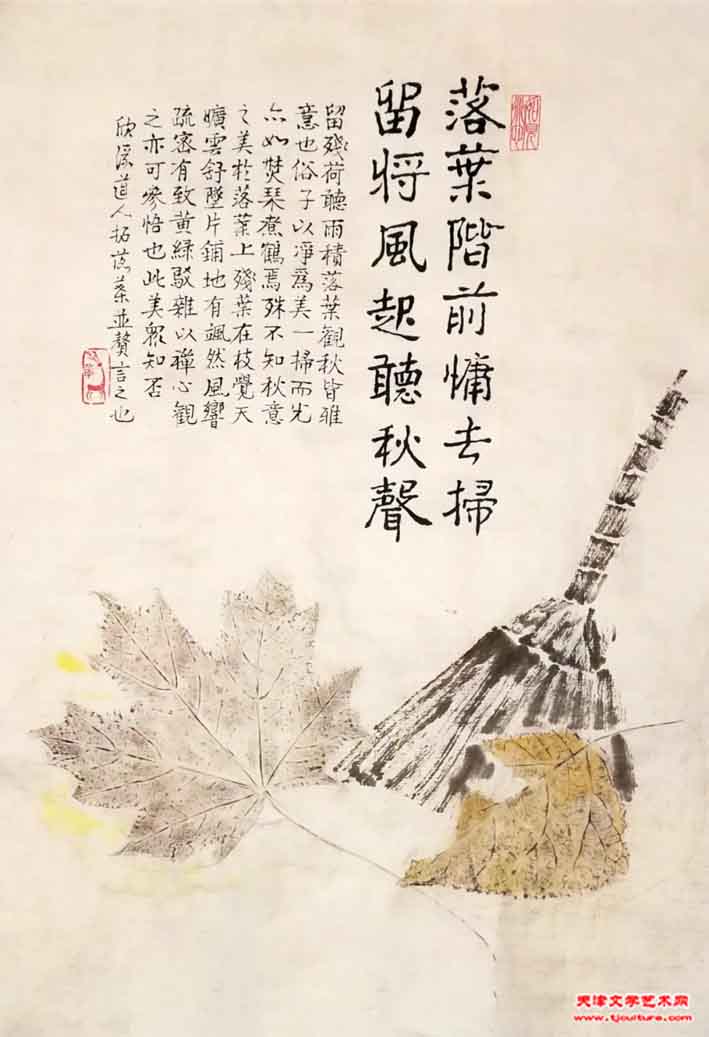 落葉階前慵去掃
留將風起聽秋聲
留殘荷聽雨積落葉觀秋皆雅
意也俗子以淨爲美一掃而光
亦如焚琴煮鶴焉殊不知秋意
之美於落葉上殘葉在枝覺天
曠雲舒墜片鋪地有颯然風響
疏密有致黃綠駁雜以禪心觀
之亦可參悟也此美眾知否
欣溪道人拓落葉並贅言之也
天津文学艺术网
www.tjculture.com